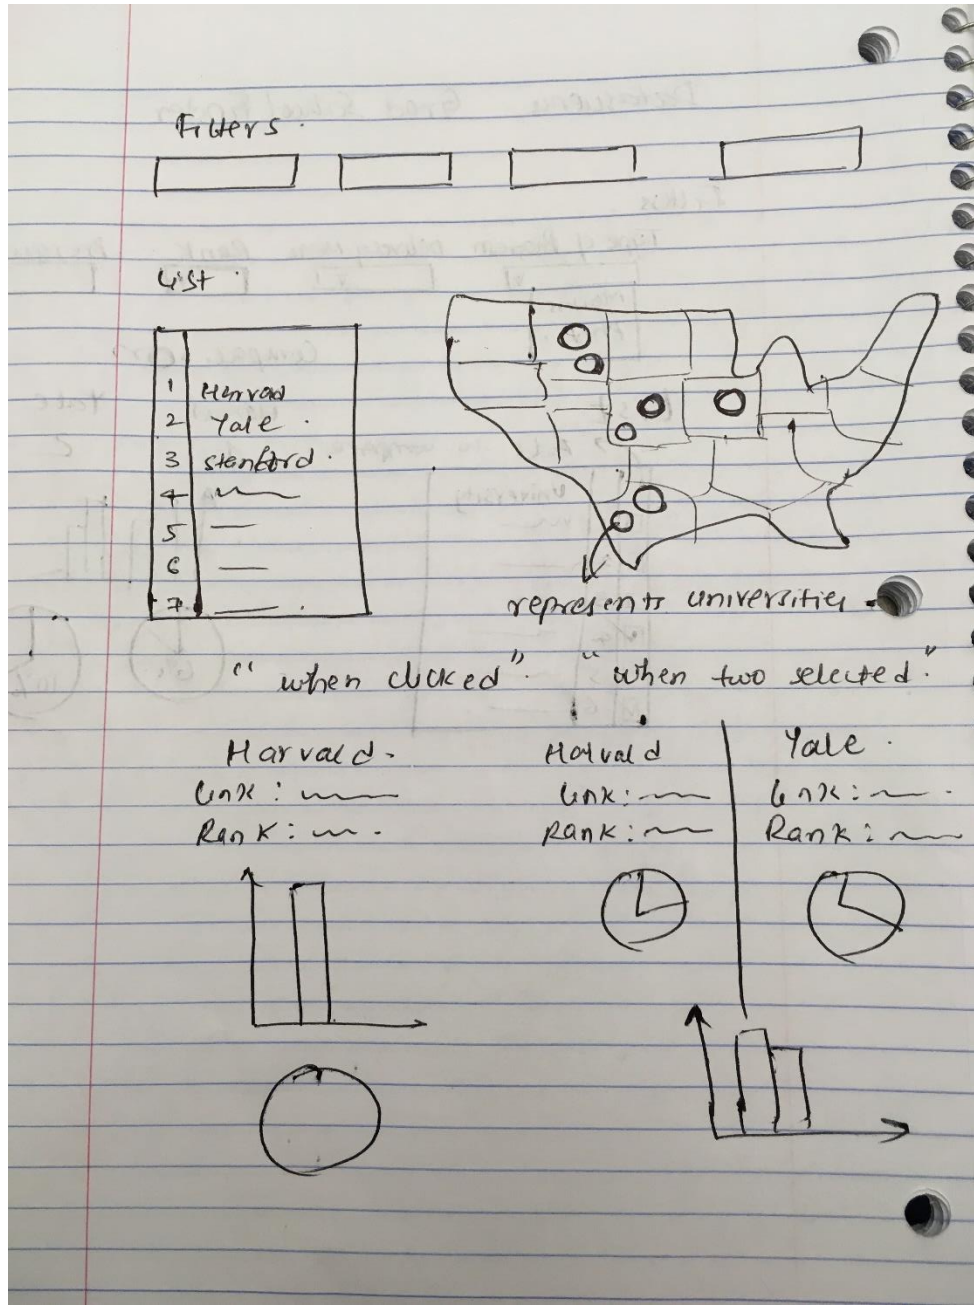 Filters.
List
1 Harvad
2 Yale.
3 stanford.
4
5
6
7
represents universities.
"when clicked". "when two selected."
Harvald.
Link:
Rank:
Halvald
Link:
Rank:
Yale.
Link:
Rank: